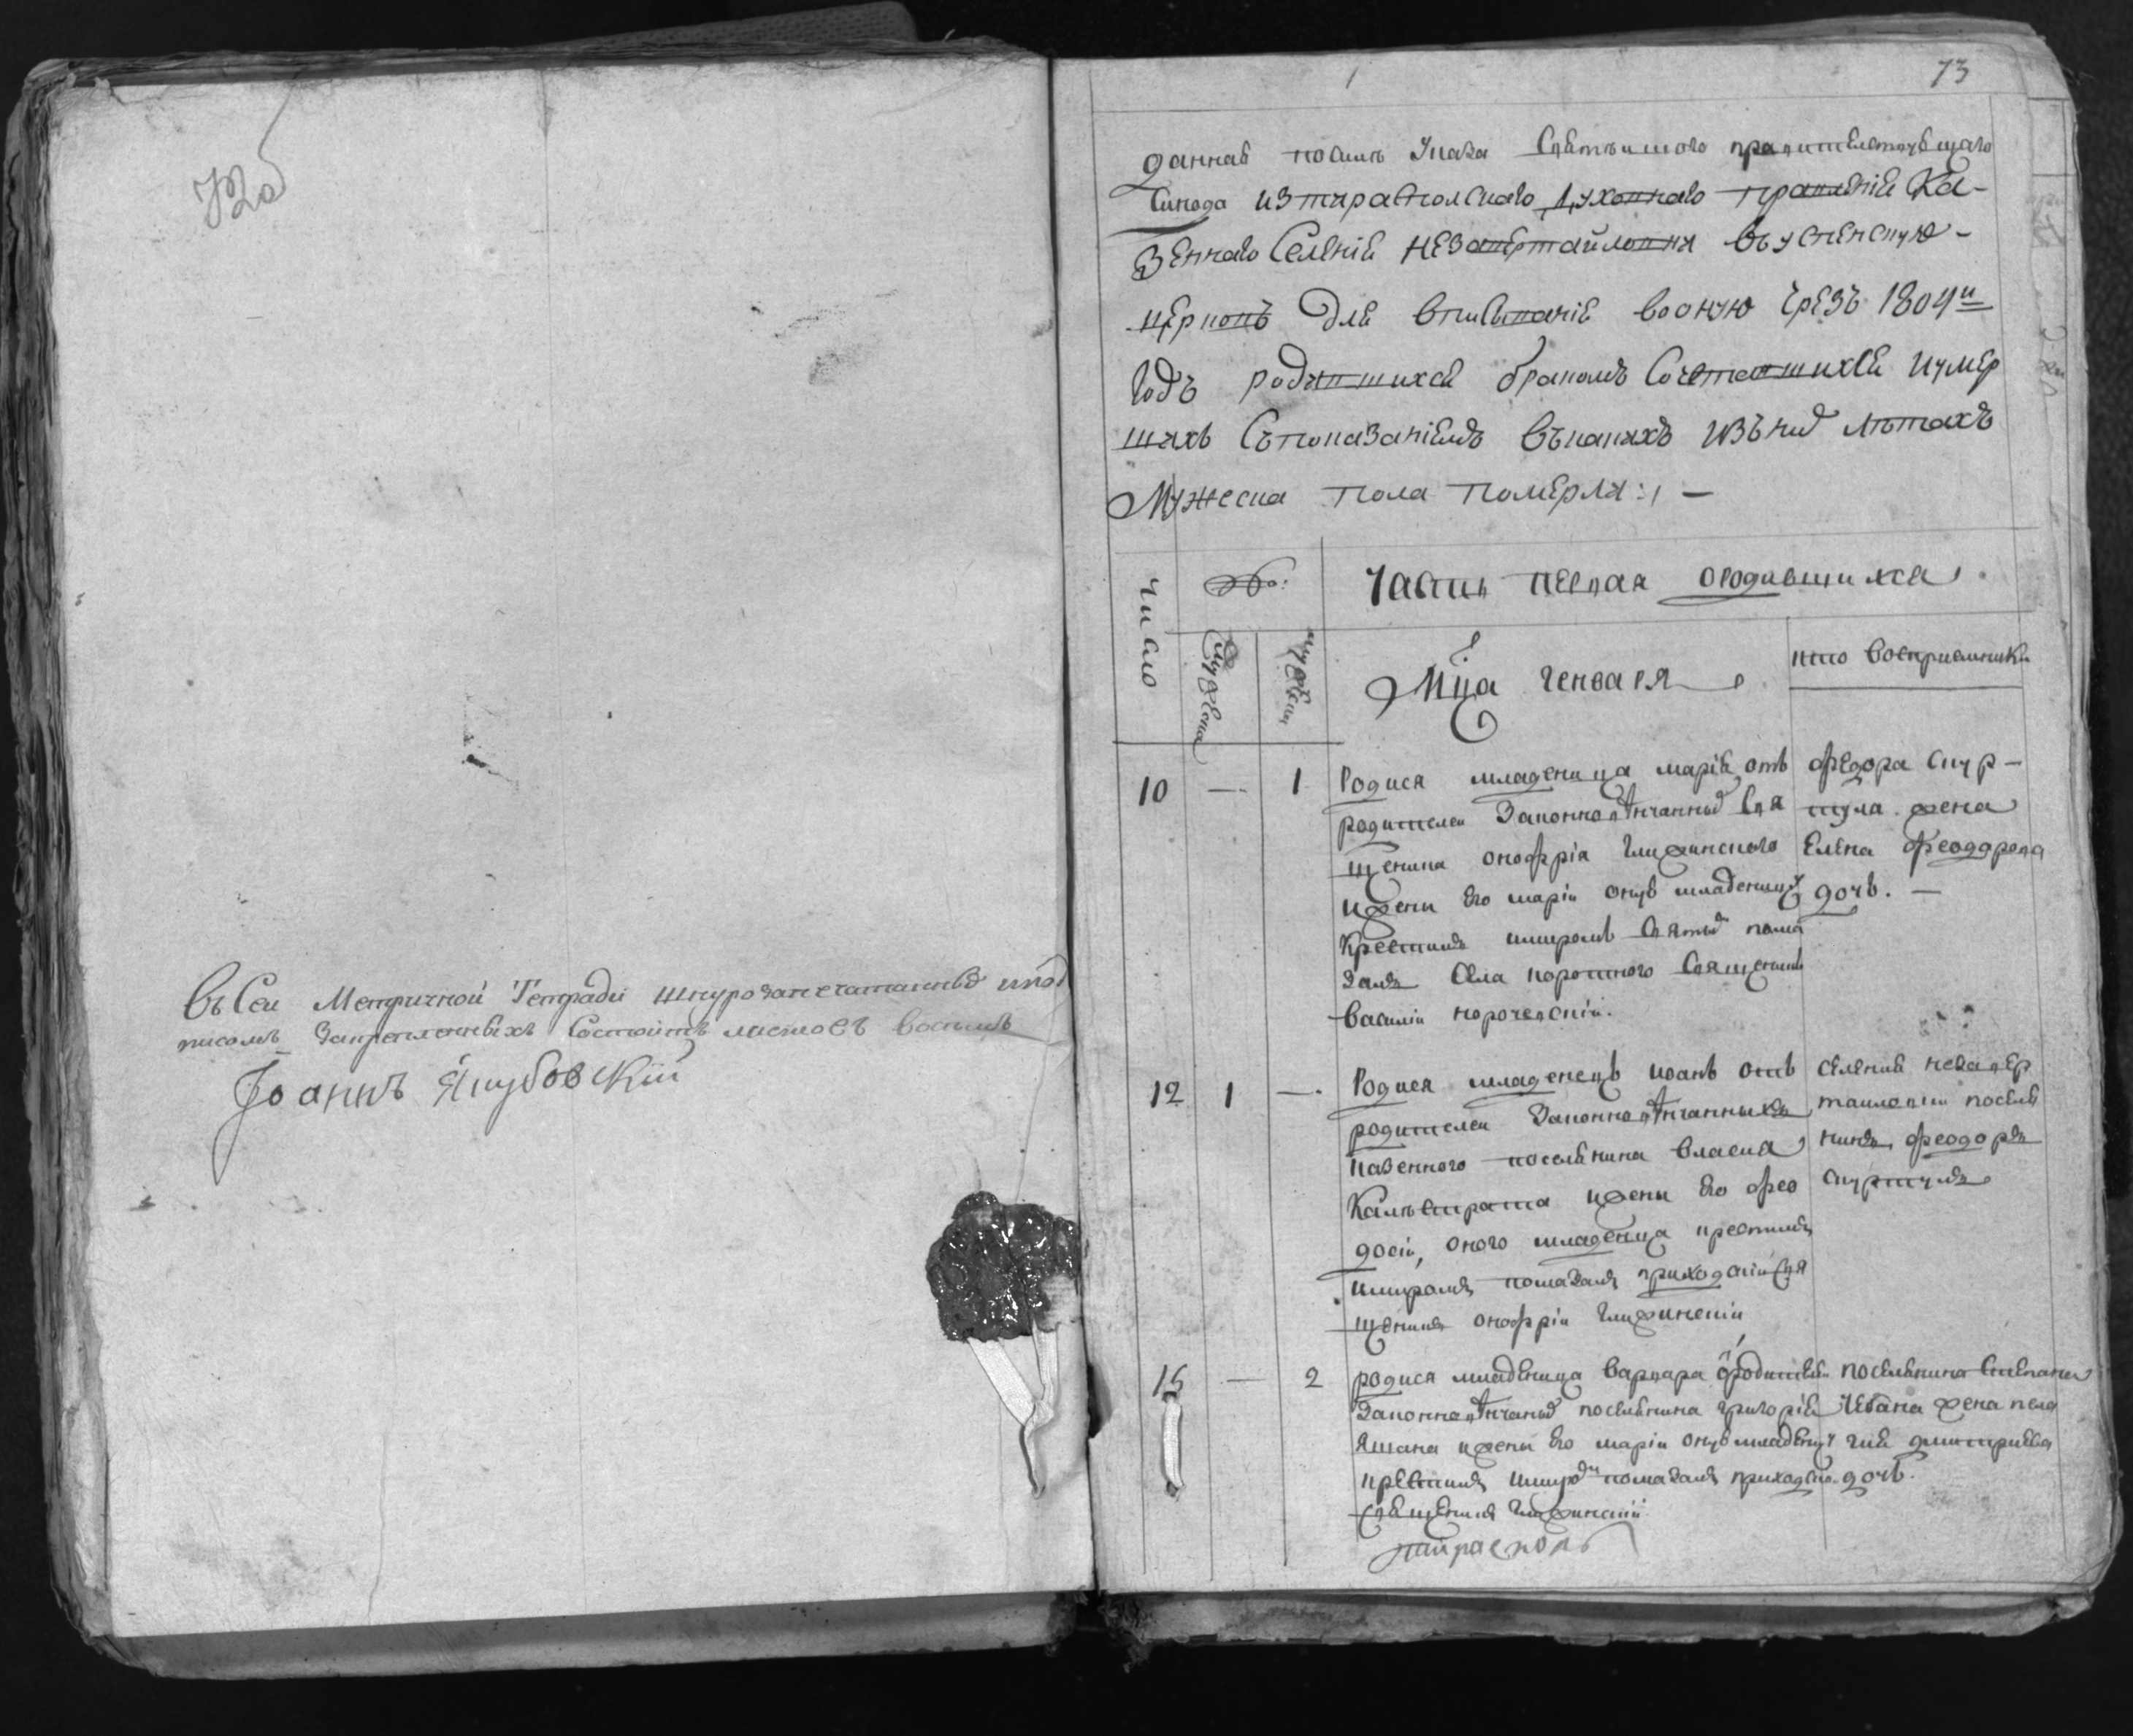 72об
Въ Сеи Метричной Тетради шнурозапечатанныхъ ипод
писомъ Закрепленныхъ Состоитъ листовъ восимъ
Іоаннъ Якубовскій
73
даннаѣ посилѣ Указа Святѣишого правителствующаго
Синода изтираспольскаго Духовнаго правленіѣ Ка-
зеннаго Селеніѣ незавертайловки въуспенскую-
церковъ длѣ вписыванія вооную чрезъ 1804и
Годъ родившихсѣ бракомъ Сочетавшихсѣ иумер
шихъ Съпоказаніемъ въкакихъ изъних лѣтахъ
Мужеска пола померли:, —
Число
Часть первая ородившихся
Мужеска
Мца генваря
кто восприемники
10 — 1
Родися младеница маріѣ отъ
родителеи Законновѣнчанных Свя
щеника онофріа Глижинского
ижени его маріи онуѣ младеницу
Крестилъ имиромъ Святым пома
залъ Села коротного Священикъ
василіи
феодора Скур-
тула жена
Елена феодорова
дочъ. —
12 1 —
Родися младенецъ иоанъ отъ
родителеи Законновѣнчанныхъ
казенного поселѣнина власия
Калѣстрата ижени его фео
досіи, оного младенца крестилъ
имиромъ помазалъ приходскіи Свя
щеникъ онофріи Глижинскіи
селениѣ незавер
таиловки поселѣ
нинъ феодоръ
Скуртулъ
15 — 2
родися младеница варвара от родителеи
Законновѣнчаных поселѣнина григоріѣ
Яшана ижени его маріи онуѣ младеницу
крестилъ имиром помазалъ приходски
Свѣщеникъ Глижинскіи
поселѣнина Стефана
Чебана жена пела
гиѣ димитриева
дочъ.
тирасполь